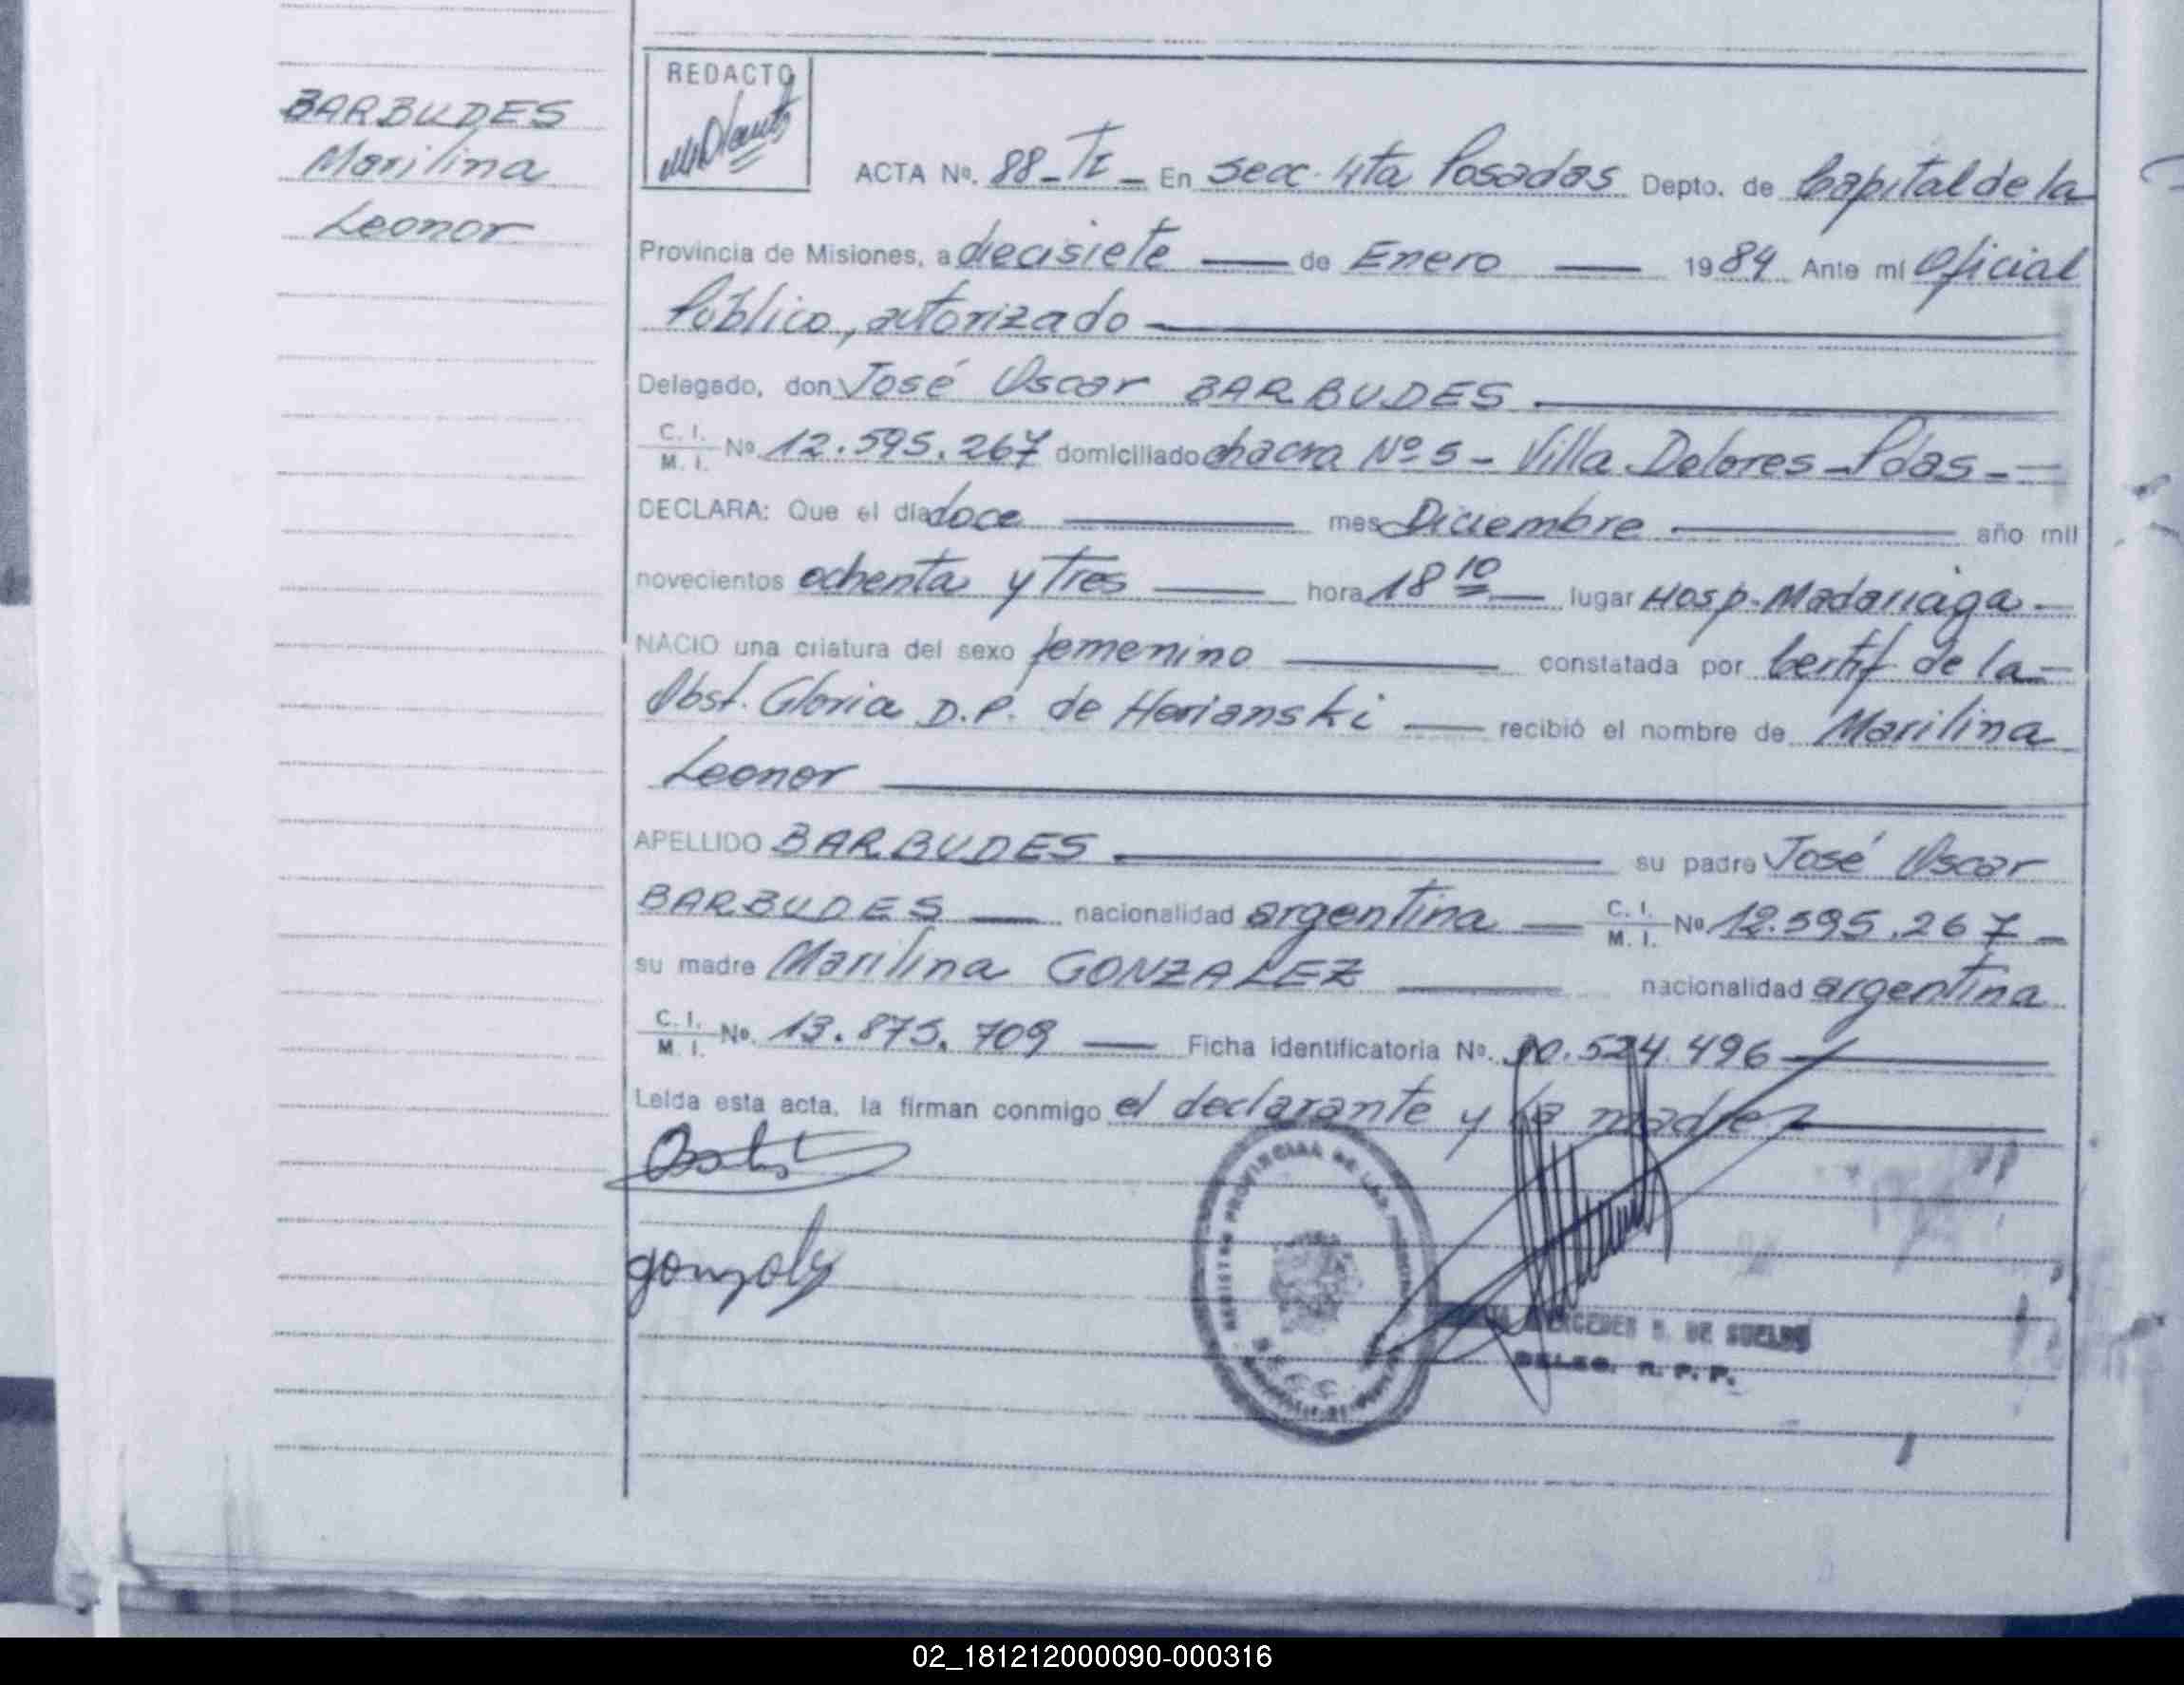 BARBUDES
Marilina
Leonor
REDACTO
ACTA Nº. 88-TI- En secc. 4ta Posadas Depto. de Capital de la
Provincia de Misiones, a diecisiete — de Enero — 1984 Ante mí Oficial
Público, autorizado —
Delegado, don José Oscar BARBUDES —
C. I. / M. I. Nº 12.595.267 domiciliado chacra Nº 5 - Villa Dolores - Pdas - —
DECLARA: Que el día doce — mes Diciembre — año mil
novecientos ochenta y Tres — hora 18 10 — lugar Hosp. Madariaga —
NACIO una criatura del sexo femenino — constatada por Certif de la —
Obst. Gloria D.P. de Horianski — recibió el nombre de Marilina
Leonor —
APELLIDO BARBUDES — su padre José Oscar
BARBUDES — nacionalidad argentina — C. I. / M. I. Nº 12.595.267 —
su madre Marilina GONZALEZ — nacionalidad argentina
C. I. / M. I. Nº. 13.875.709 — Ficha identificatoria Nº. 30.524.496 —
Leída esta acta, la firman conmigo el declarante y la madre —
gonzalez
REGISTRO PROVINCIAL DE LAS
MERCEDES DE SUELDO
DELEG. R. P. P.
02_181212000090-000316